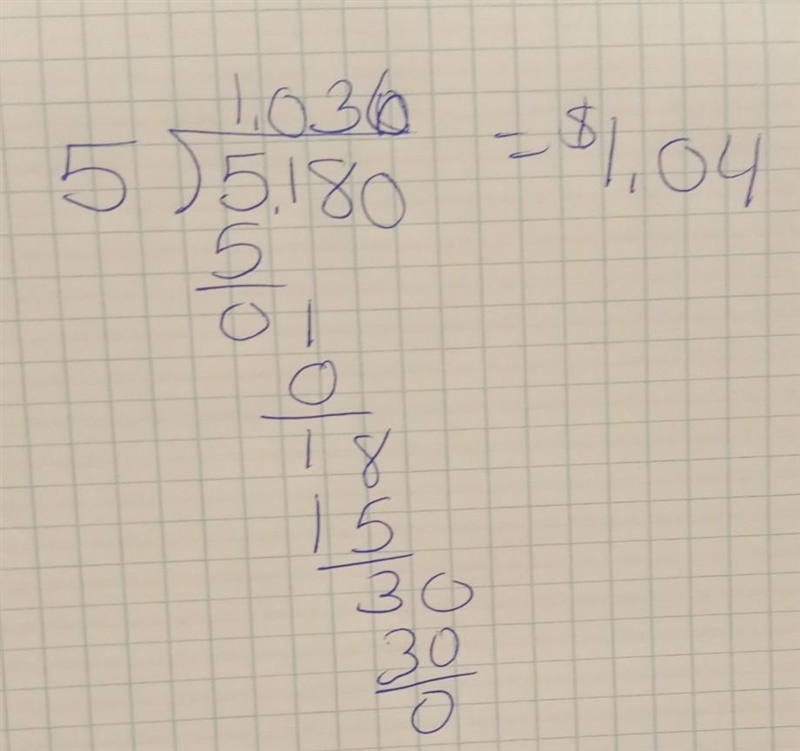 1.036
5 ) 5.180 = $1.04
5
0 1
0
1 8
1 5
3 0
3 0
0